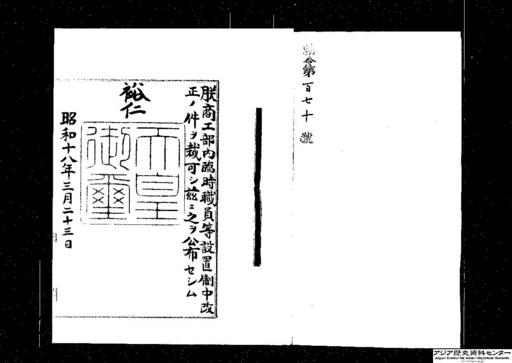 勅令第百七十號
朕商工部内臨時職員等設置制中改
正ノ件ヲ裁可シ茲ニ之ヲ公布セシム
裕仁
天皇
御璽
昭和十八年三月二十三日
アジア歴史資料センター
Japan Center for Asian Historical Records